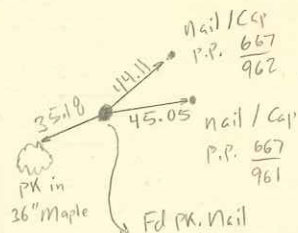 nail/Cap
p.p. 667
962
44.11
35.18
45.05
nail/Cap
p.p. 667
961
PK in
36" Maple
Fd PK. Nail